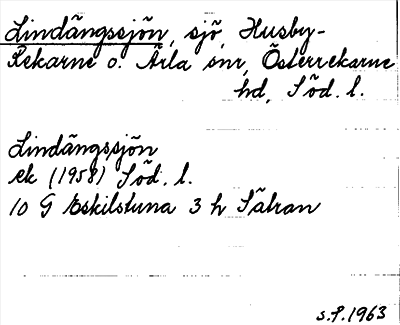 Lindängssjön, sjö, Husby-
Rekarne o. Ärla snr, Österrekarne
hd, Söd. l.
Lindängssjön
ek (1958) Söd. l.
10 G Eskilstuna 3 h Sätran
s.P.1963